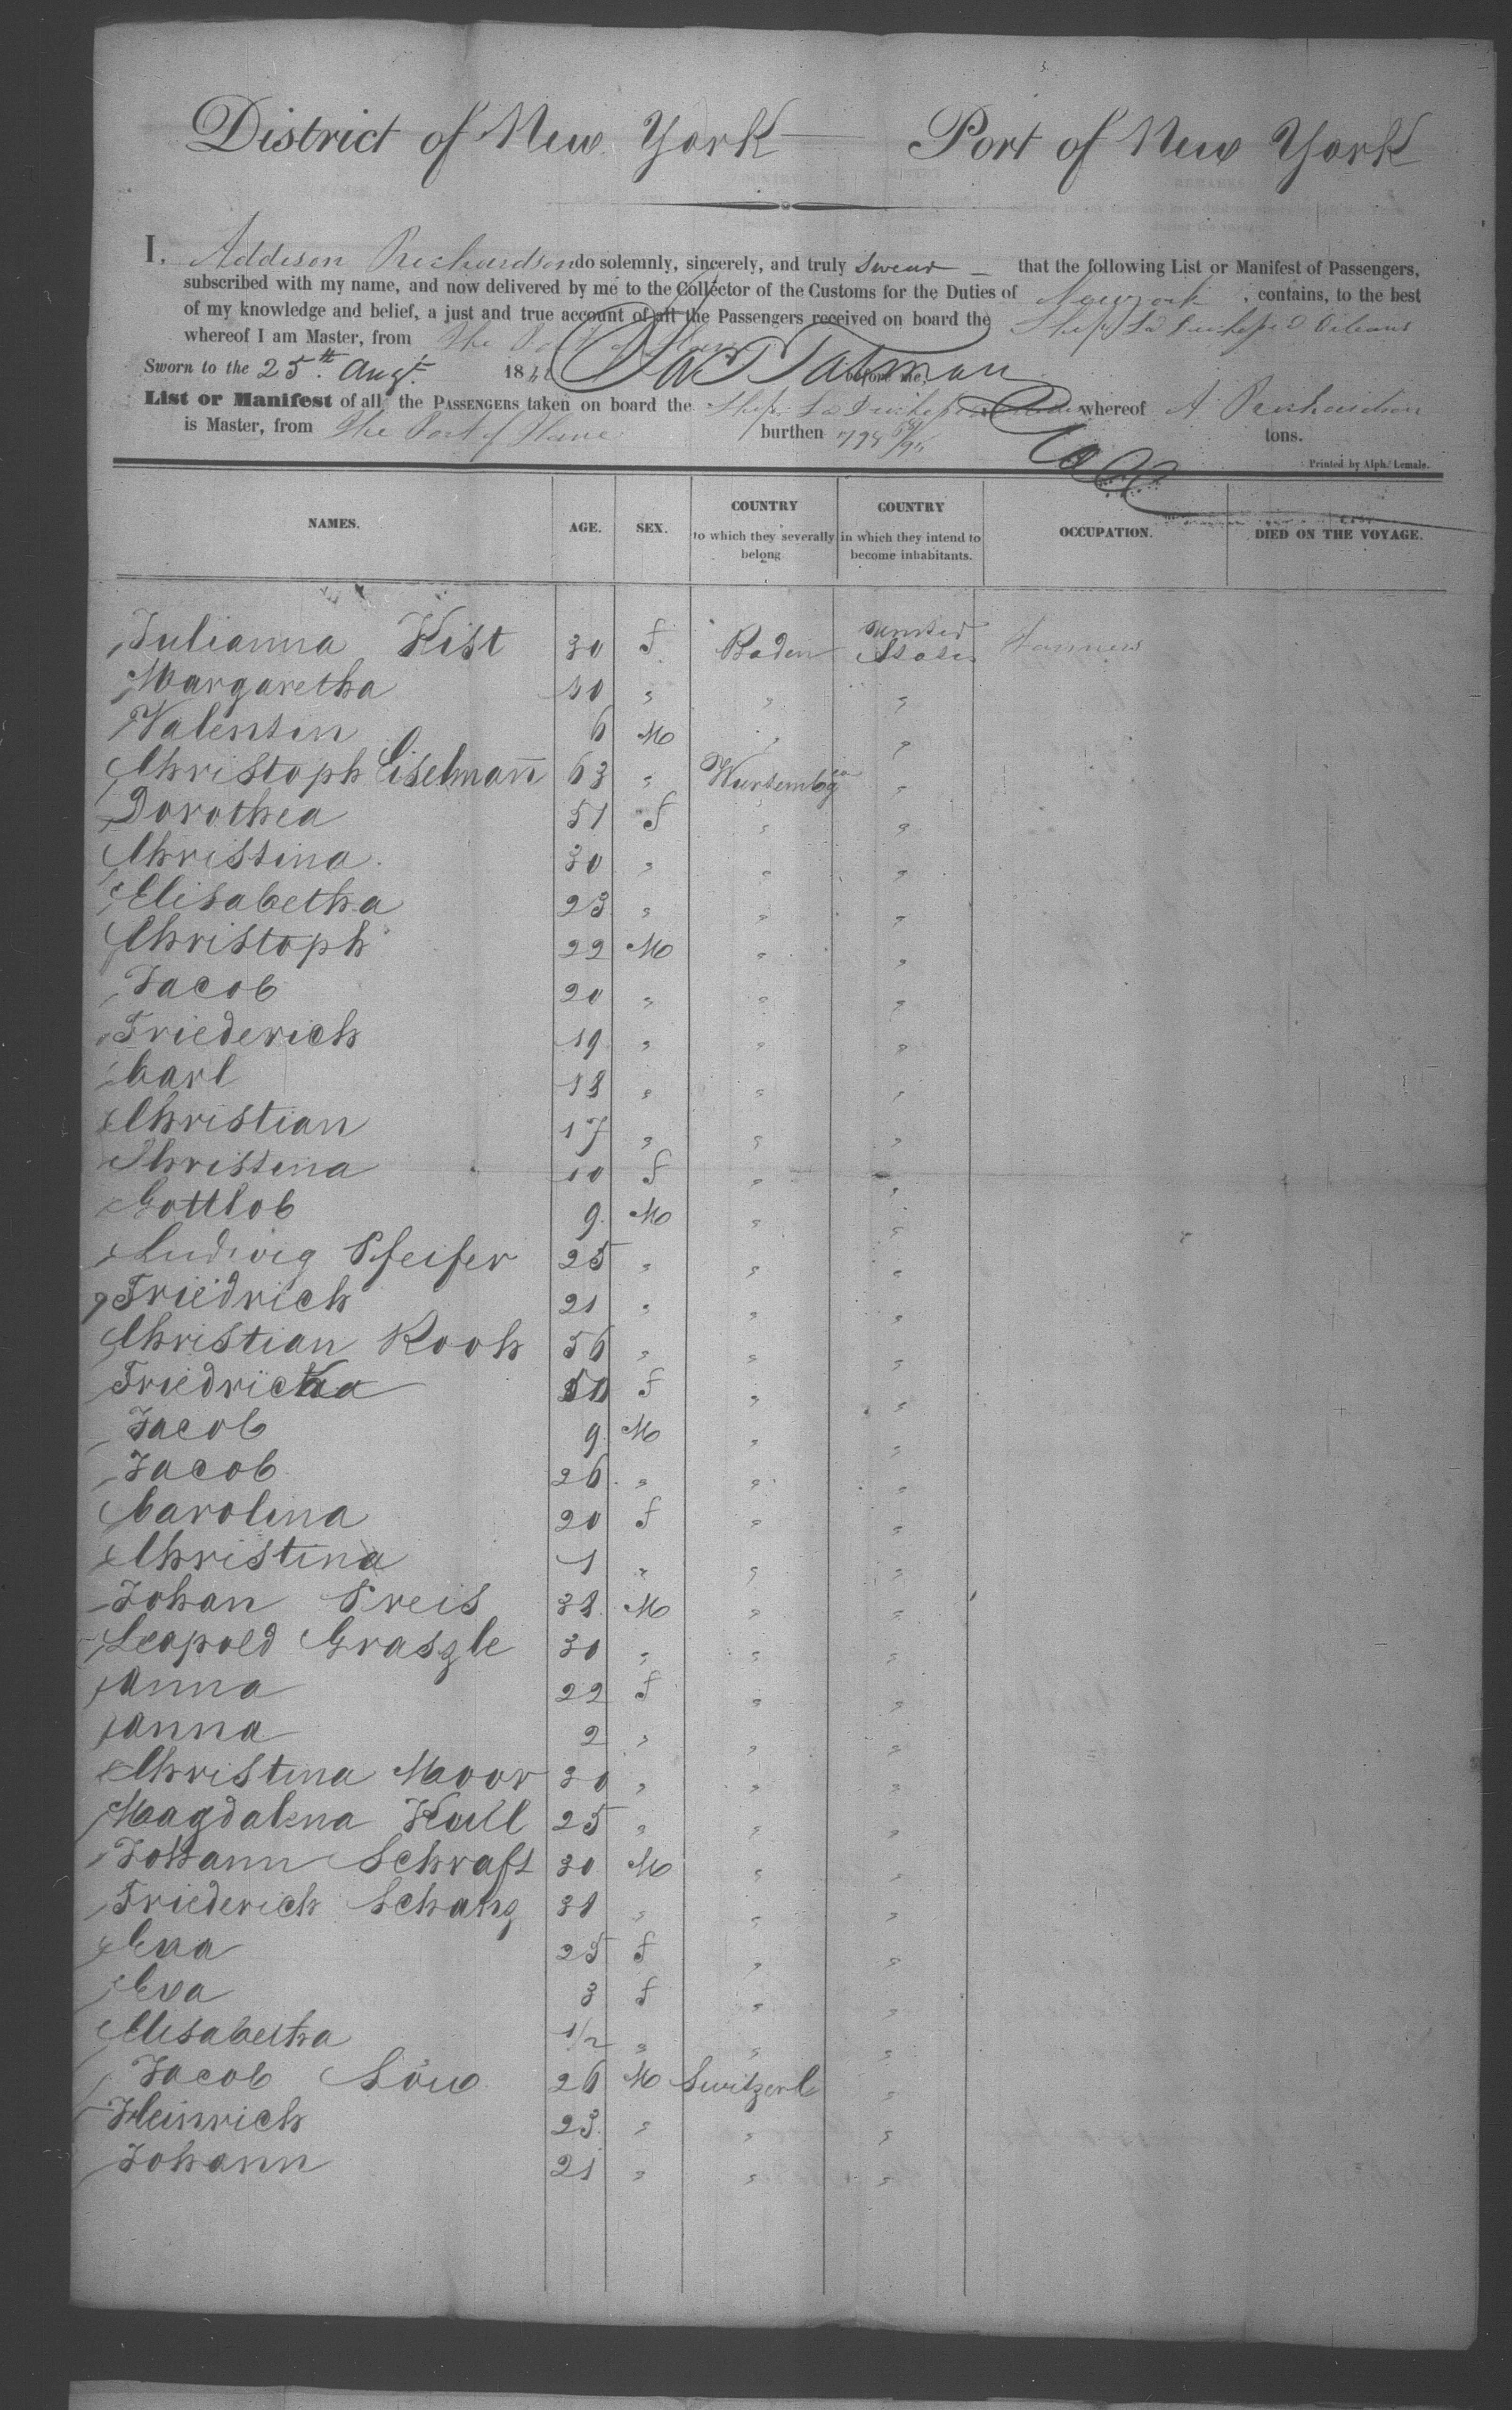 District of New York Port of New York
I. Addison Richardson do solemnly, sincerely, and truly swear that the following List or Manifest of Passengers,
subscribed with my name, and now delivered by me to the Collector of the Customs for the Duties of New York, contains, to the best
of my knowledge and belief, a just and true account of all the Passengers received on board the Ship La Duchesse D Orleans
whereof I am Master, from The Port of Havre
Sworn to the 25th Augt. 18 before me,
List or Manifest of all the PASSENGERS taken on board the Ship La Duchesse whereof A. Richardson
is Master, from The Port of Havre burthen tons.
Printed by Alph. Lemale.
NAMES. AGE. SEX. COUNTRY to which they severally belong COUNTRY in which they intend to become inhabitants. OCCUPATION. DIED ON THE VOYAGE.
Julianna Kist 30 f Baden United States Farmers
Margaretha 10 " " "
Valentin 6 M " "
Christoph Eiselmann 63 " Wurtembg "
Dorothea 51 f " "
Christina 30 " " "
Elisabetha 23 " " "
Christoph 22 M " "
Jacob 20 " " "
Friederich 19 " " "
Carl 18 " " "
Christian 17 " " "
Christina 10 f " "
Gottlob 9 M " "
Ludwig Pfeifer 25 " " "
Friedrich 21 " " "
Christian Kooh 56 " " "
Friedricka f " "
Jacob 9 M " "
Jacob 26 " " "
Carolina 20 f " "
Christina 1 " " "
Johan Preis 31 M " "
Leopold Graszle 30 " " "
Anna 22 f " "
Anna 2 " " "
Christina Moor 30 " " "
Magdalena Kull 25 " " "
Johann Schraft 30 M " "
Friederich Schang 31 " " "
Eva 25 f " "
Eva 3 f " "
Elisabetha 1/2 " " "
Jacob Löw 26 M Switzerl "
Heinrich 23 " " "
Johann 21 " " "